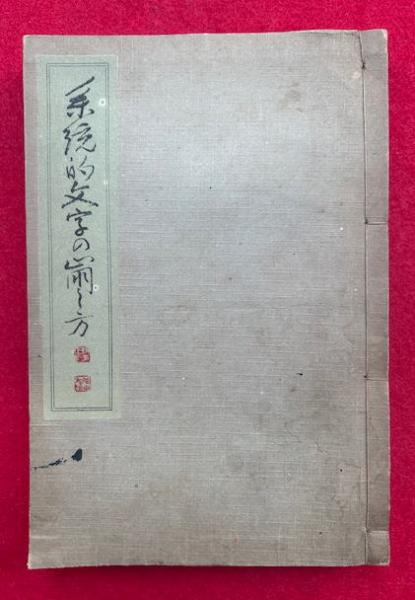 系統的文字の崩し方